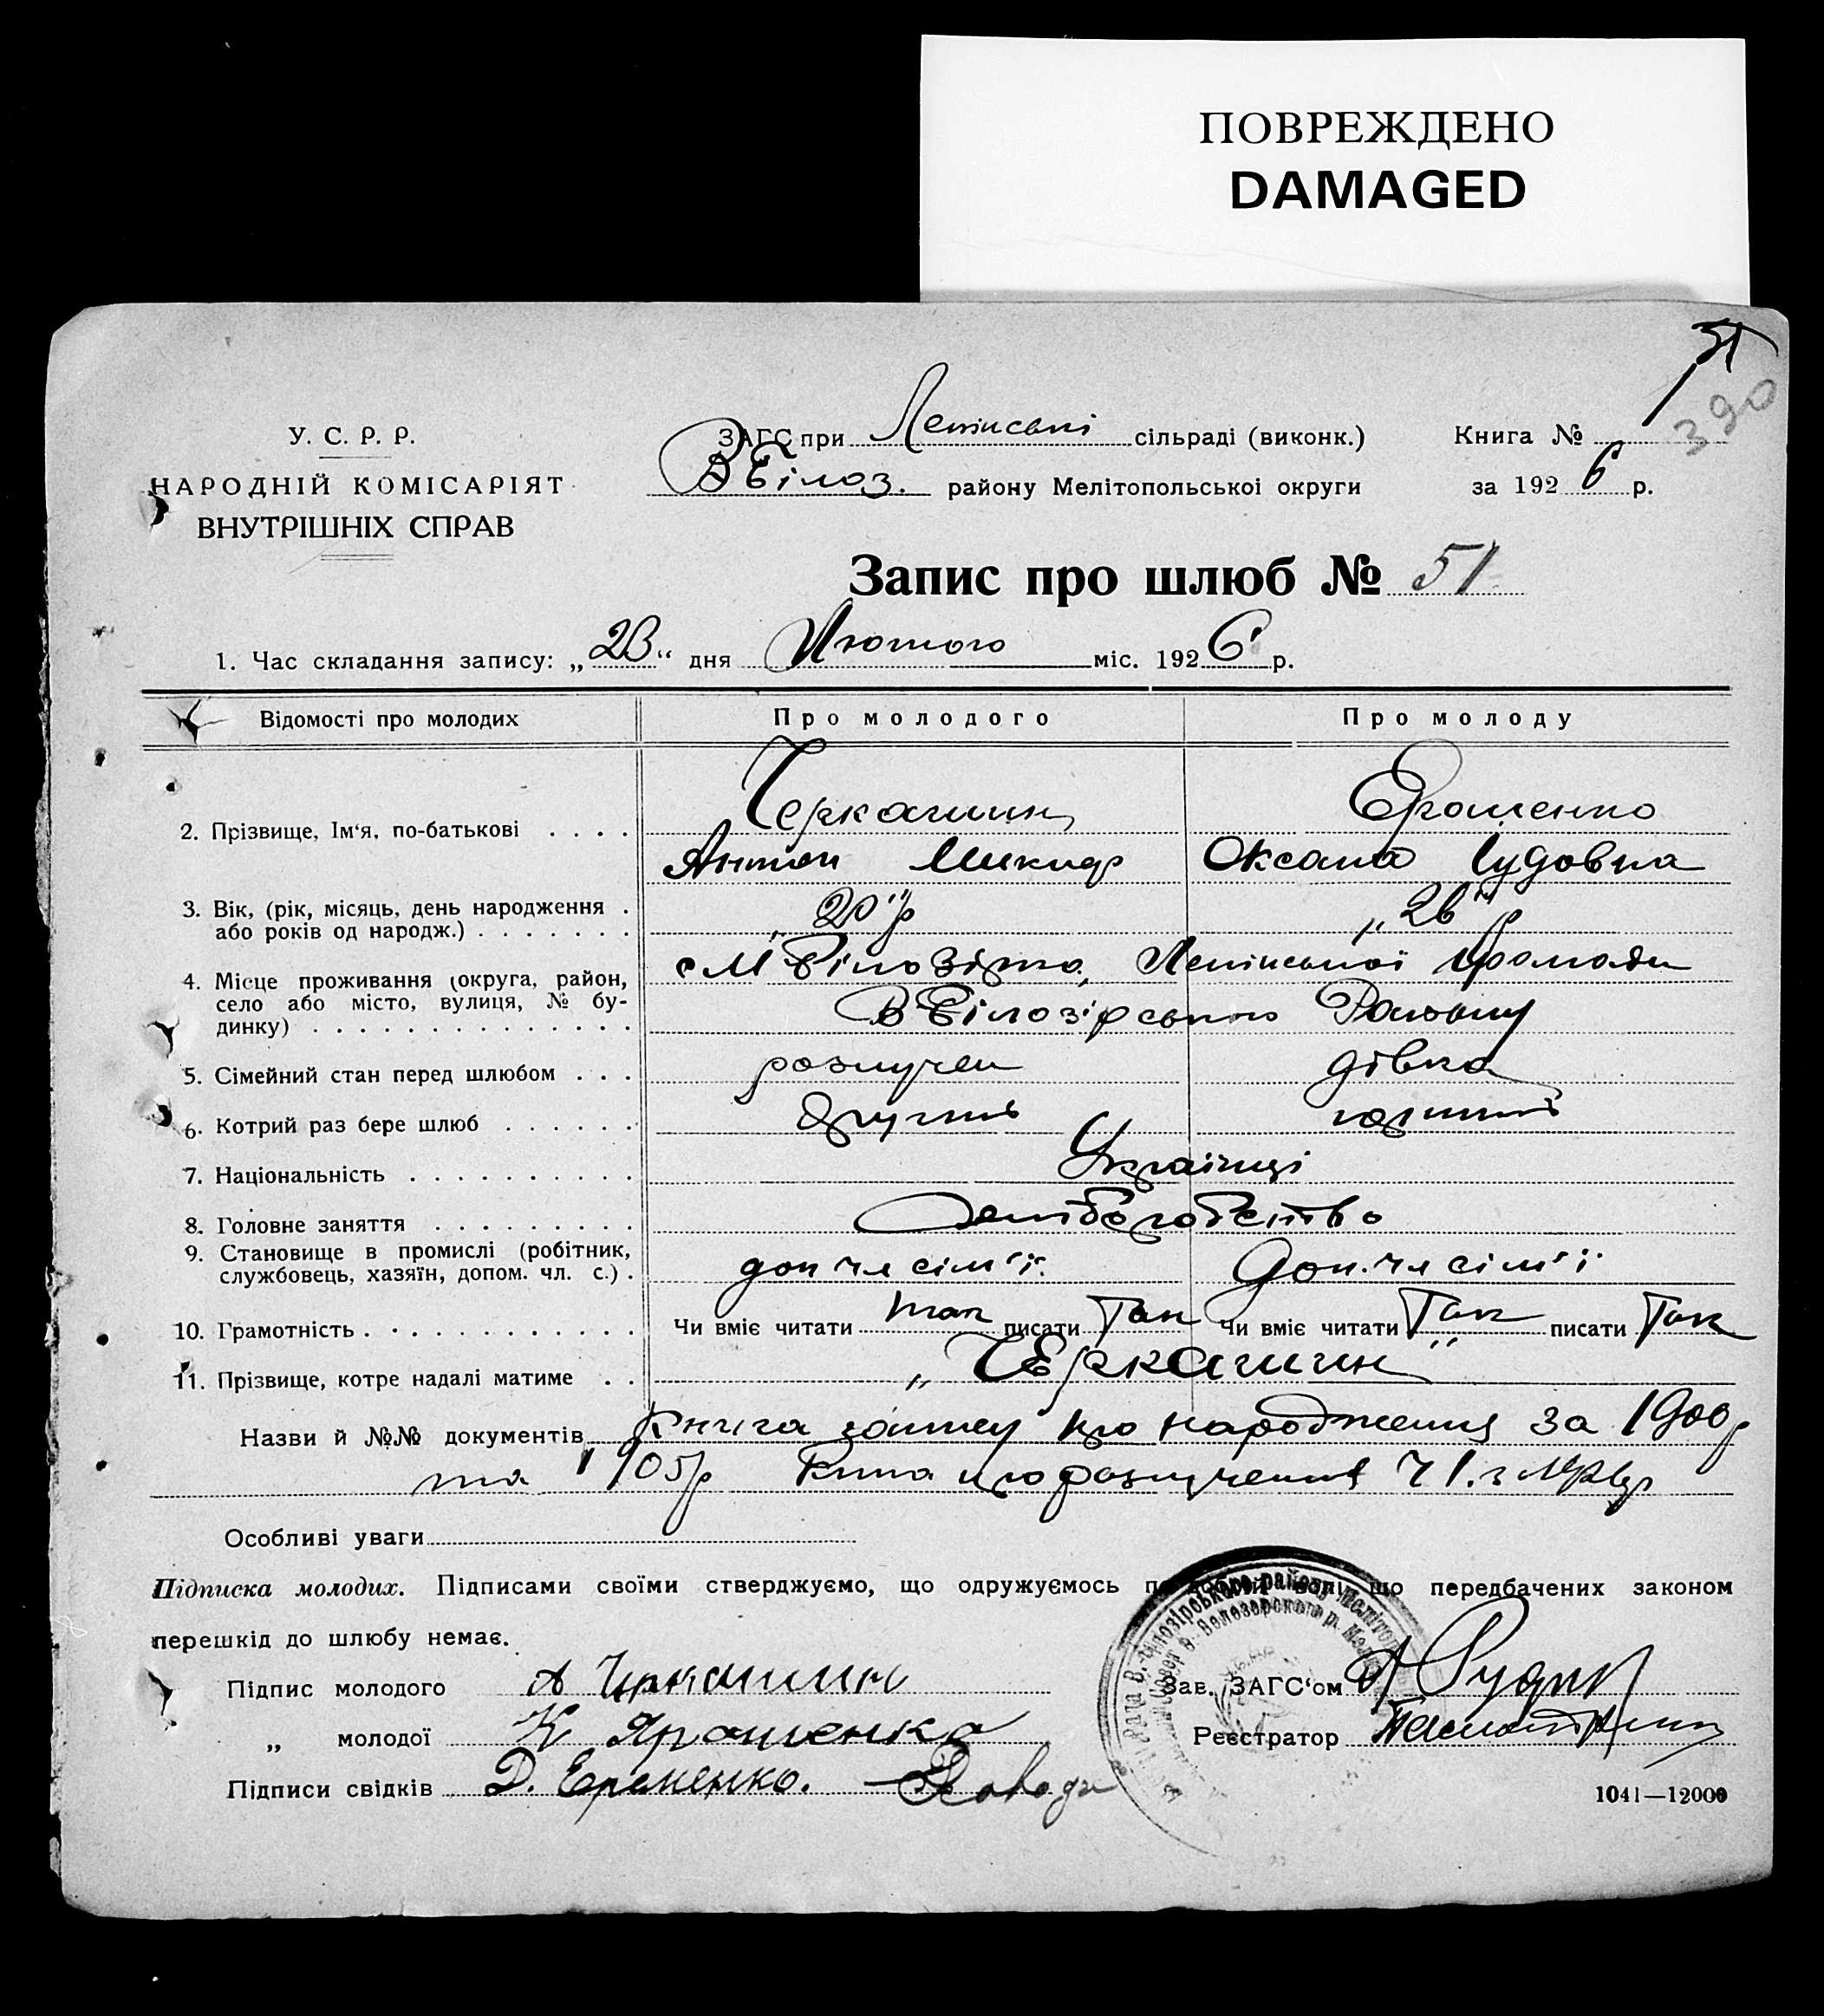 ПОВРЕЖДЕНО
DAMAGED
51
390
У. С. Р. Р.
НАРОДНІЙ КОМІСАРІЯТ
ВНУТРІШНІХ СПРАВ
ЗАГС при Ленінські сільраді (виконк.)
В Білоз. району Мелітопольської округи
Книга № 1
за 1926 р.
Запис про шлюб № 51
1. Час складання запису: „23“ дня Лютого міс. 1926 р.
Відомості про молодих Про молодого Про молоду
2. Прізвище, Ім‘я, по-батькові . . . . Черкашин Ярошенко
Антон Микиф Оксана Іудовна
3. Вік, (рік, місяць, день народження . „20“ р „26“ р
або років од народж.) . . . . . . .
4. Місце проживання (округа, район, с М Білозірка, Ленінської Громади
село або місто, вулиця, № бу-
динку) . . . . . . . . . . . . . . В Білозірського Району
5. Сімейний стан перед шлюбом . . . розлучен дівка
6. Котрий раз бере шлюб . . . . . . другий перший
7. Національність . . . . . . . . . . Українці
8. Головне заняття . . . . . . . . . хліборобство
9. Становище в промислі (робітник,
службовець, хазяїн, допом. чл. с.) . доп чл сім'ї. Доп. чл сім'ї
10. Грамотність . . . . . . . . . . . . Чи вміє читати так писати Так Чи вміє читати Так писати Так
11. Прізвище, котре надалі матиме . . „Черкашин“
Назви й №№ документів Книга запису про народження за 1900 р
та 1905 р про розлучення Ч 1. з
Особливі уваги
Підписка молодих. Підписами своїми стверджуємо, що одружуємось по добрій волі, що передбачених законом
перешкід до шлюбу немає.
Підпис молодого А Черкашин
„ молодої К Ярошенка
Підписи свідків Д. Еременко.
Зав. ЗАГС‘ом
Реєстратор
1041—12000